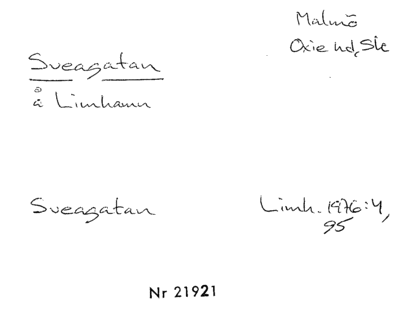 Malmö
Oxie hd, Sk
Sveagatan
å Limhamn
Sveagatan
Limh. 1976:4,
95
Nr 21921